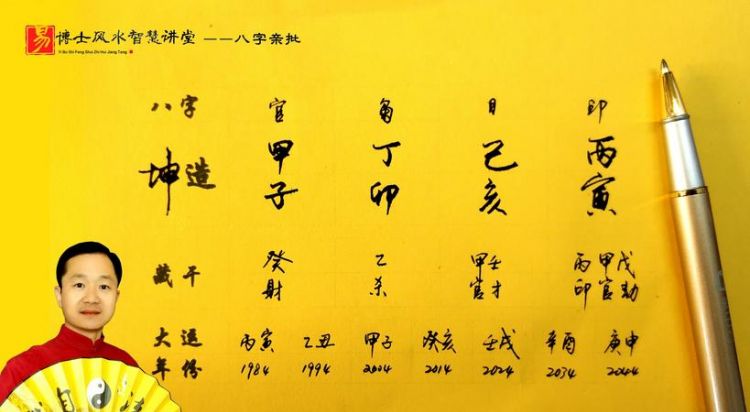 易 博士风水智慧讲堂 ——八字亲批
Yi Bo Shi Feng Shui Zhi Hui Jiang Tang
八字 官 枭 日 印
坤造 甲 丁 己 丙
子 卯 亥 寅
藏干 癸 乙 甲壬 丙甲戊
財 杀 官才 印官劫
大运 丙寅 乙丑 甲子 癸亥 壬戌 辛酉 庚申
年份 1984 1994 2004 2014 2024 2034 2044